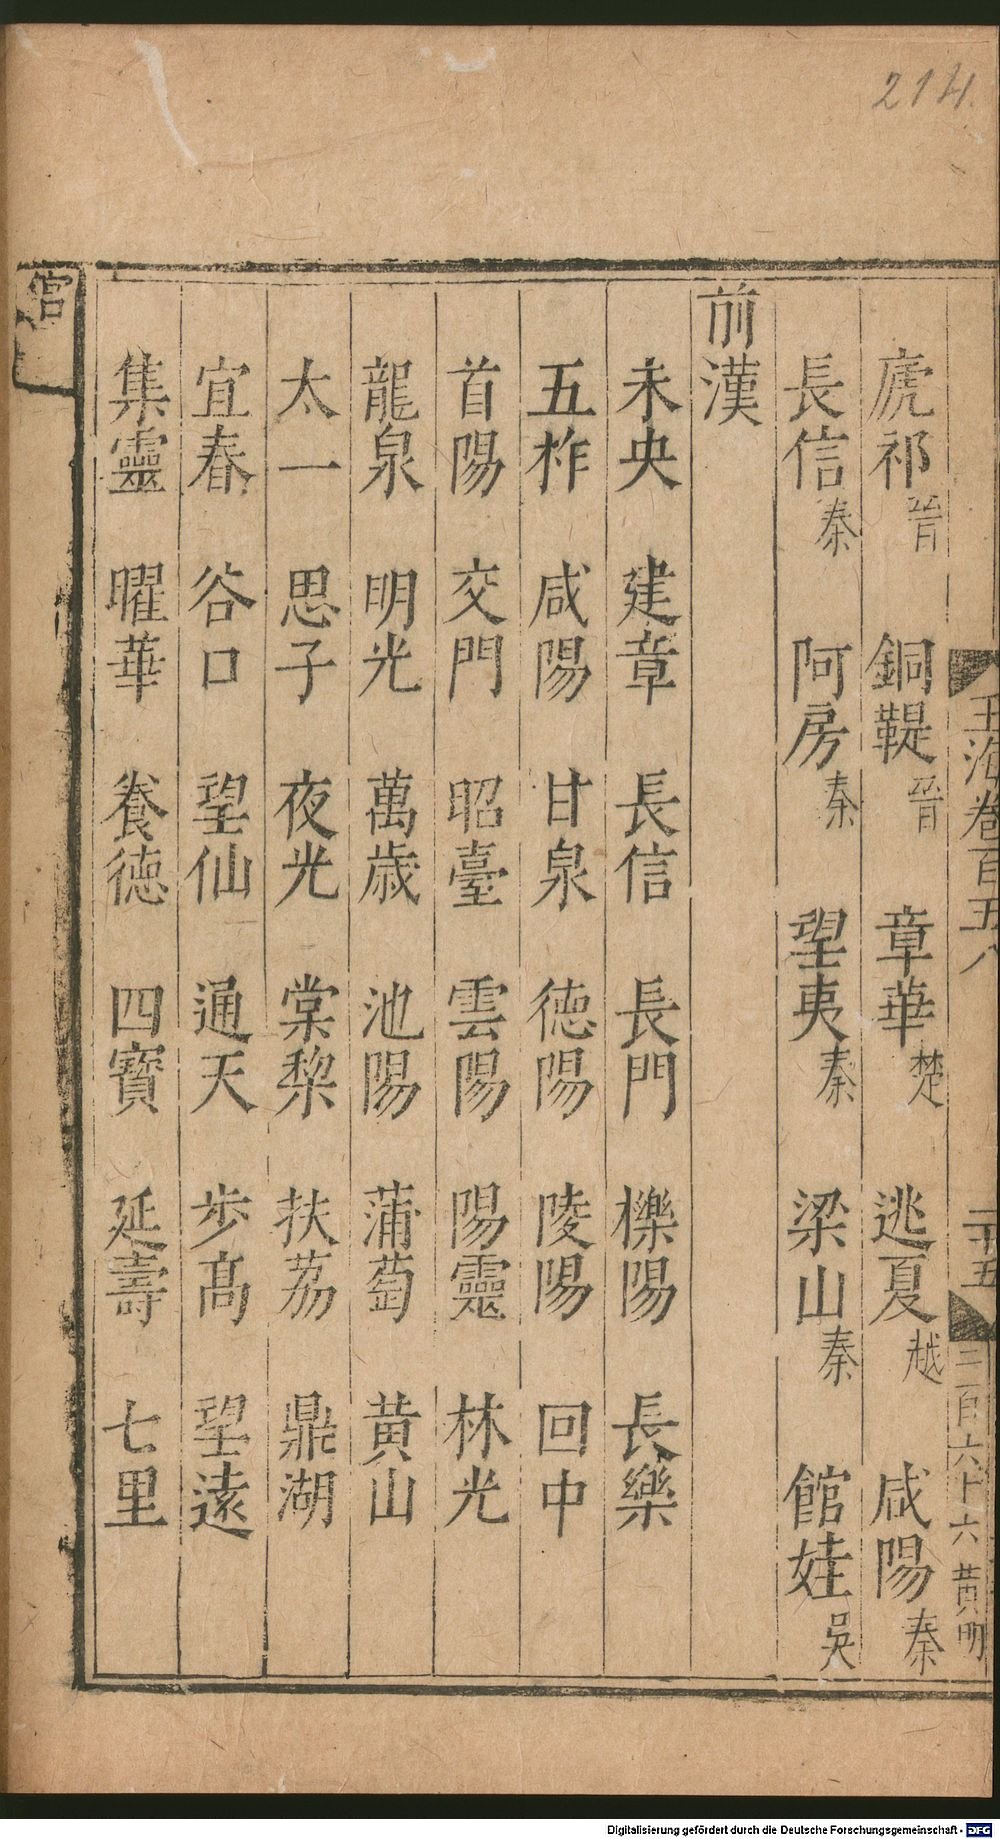 214
玉海卷百五八
二十五
三百六十六 黄明
虒祁晉 銅鞮晉 章華楚 逃夏越 咸陽秦
長信秦 阿房秦 望夷秦 梁山秦 館娃吳
前漢
未央 建章 長信 長門 櫟陽 長樂
五柞 咸陽 甘泉 德陽 陵陽 回中
首陽 交門 昭臺 雲陽 陽靈 林光
龍泉 明光 萬歲 池陽 蒲萄 黄山
太一 思子 夜光 棠棃 扶荔 鼎湖
宜春 谷口 望仙 通天 步高 望遠
集靈 曜華 養德 四寶 延壽 七里
宮
Digitalisierung gefördert durch die Deutsche Forschungsgemeinschaft - DFG